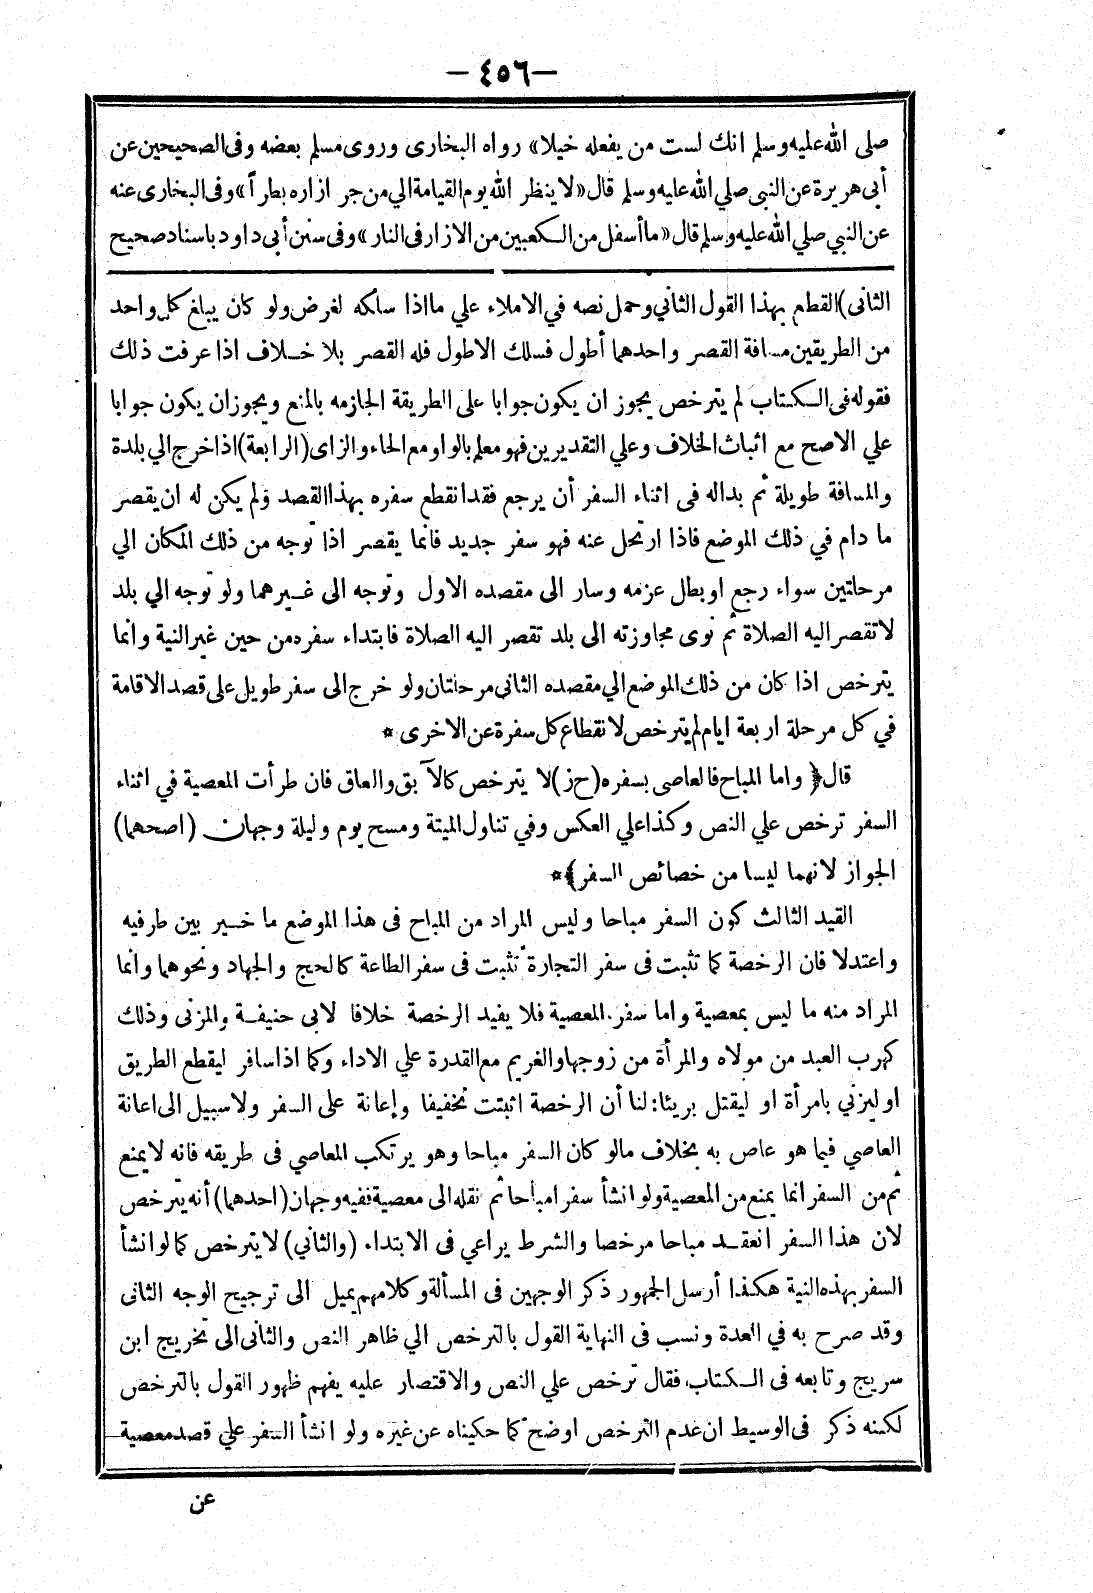 — ٤٥٦ —
صلى الله عليه وسلم انك لست من يفعله خيلا» رواه البخارى وروى مسلم بعضه وفى الصحيحين عن
أبى هريرة عن النبى صلي الله عليه وسلم قال «لا ينظر الله يوم القيامة الي من جر ازاره بطراً» وفى البخارى عنه
عن النبي صلي الله عليه وسلم قال «ما أسفل من الكعبين من الازار فى النار» وفى سنن أبى داود باسناد صحيح
الثانى) القطع بهذا القول الثاني وحمل نصه في الاملاء علي ما اذا سلكه لغرض ولو كان يبلغ كل واحد
من الطريقين مسافة القصر واحدهما أطول فسلك الاطول فله القصر بلا خلاف اذا عرفت ذلك
فقوله فى الكتاب لم يترخص يجوز ان يكون جوابا على الطريقة الجازمه بالمنع ويجوز ان يكون جوابا
علي الاصح مع اثبات الخلاف وعلي التقديرين فهو معلم بالواو مع الحاء والزاى (الرابعة) اذا خرج الي بلدة
والمسافة طويلة ثم بداله فى اثناء السفر أن يرجع فقد انقطع سفره بهذا القصد ولم يكن له ان يقصر
ما دام في ذلك الموضع فاذا ارتحل عنه فهو سفر جديد فانما يقصر اذا توجه من ذلك المكان الي
مرحلتين سواء رجع او بطل عزمه وسار الى مقصده الاول وتوجه الى غيرهما ولو توجه الي بلد
لا تقصر اليه الصلاة ثم نوى مجاوزته الى بلد تقصر اليه الصلاة فابتداء سفره من حين غير النية وانما
يترخص اذا كان من ذلك الموضع الي مقصده الثانى مرحلتان ولو خرج الى سفر طويل على قصد الاقامة
في كل مرحلة اربعة ايام لم يترخص لانقطاع كل سفرة عن الاخرى *
قال ﴿ واما المباح فالعاصى بسفره (ح ز) لا يترخص كالآبق والعاق فان طرأت المعصية في اثناء
السفر ترخص علي النص وكذا علي العكس وفي تناول الميتة ومسح يوم وليلة وجهان (اصحهما)
الجواز لانهما ليسا من خصائص السفر ﴾ *
القيد الثالث كون السفر مباحا وليس المراد من المباح فى هذا الموضع ما خير بين طرفيه
واعتدلا فان الرخصة كما تثبت فى سفر التجارة تثبت فى سفر الطاعة كالحج والجهاد ونحوهما وانما
المراد منه ما ليس بمعصية واما سفر المعصية فلا يفيد الرخصة خلافا لابى حنيفة والمزنى وذلك
كهرب العبد من مولاه والمرأة من زوجها والغريم مع القدرة علي الاداء وكما اذا سافر ليقطع الطريق
او ليزني بامرأة او ليقتل بريئا: لنا أن الرخصة اثبتت تخفيفا وإعانة على السفر ولا سبيل الى اعانة
العاصي فيما هو عاص به بخلاف مالو كان السفر مباحا وهو يرتكب المعاصي فى طريقه فانه لا يمنع
ثم من السفر انما يمنع من المعصية ولو انشأ سفرا مباحا ثم نقله الى معصية ففيه وجهان (احدهما) أنه يترخص
لان هذا السفر انعقد مباحا مرخصا والشرط يراعي فى الابتداء (والثاني) لا يترخص كما لو انشأ
السفر بهذه النية هكذا أرسل الجمهور ذكر الوجهين فى المسألة وكلامهم يميل الى ترجيح الوجه الثانى
وقد صرح به في العدة ونسب فى النهاية القول بالترخص الي ظاهر النص والثانى الى تخريج ابن
سريج وتابعه فى الكتاب فقال ترخص علي النص والاقتصار عليه يفهم ظهور القول بالترخص
لكنه ذكر فى الوسيط ان عدم الترخص اوضح كما حكيناه عن غيره ولو انشأ السفر علي قصد معصية
عن